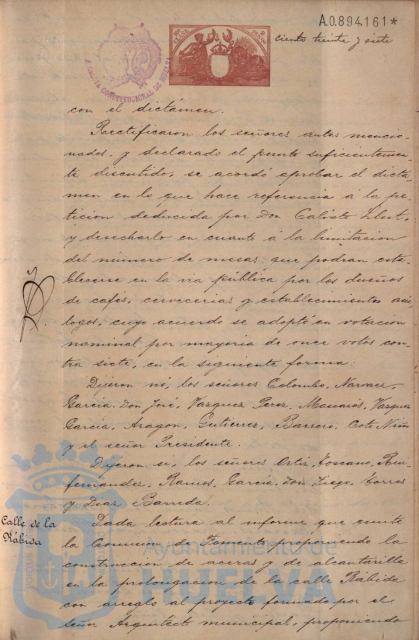 A.0.894.161*
ciento treinta y siete
con el dictámen.
Rectificaron los señores antes mencio-
nados, y declarado el punto suficientemen-
te discutido, se acordó aprobar el dictá-
men en lo que hace referencia á la pe-
ticion deducida por Don Calisto
y desecharlo en cuanto á la limitacion
del número de mesas que podran esta-
blecerse en la via pública por los dueños
de cafés, cervecerias y establecimientos aná-
logos, cuyo acuerdo se adoptó en votacion
nominal por mayoria de once votos con-
tra siete, en la siguiente forma:
Dijeron no, los señores Colombo, Narvaez,
García Don José, Vazquez Perez, Vazquez
García, Aragon, Gutierrez, Barroso, Coto, Niño
y el señor Presidente.
Dijeron si, los señores Ortiz, Toscano,
fernandez, Ramos, García Don Diego, Correa
y Diaz Barreda.
Calle de la
Rábida
Dada lectura al informe que emite
la Comision de Fomento proponiendo la
construccion de aceras y de alcantarilla
en la prolongacion de la calle Rábida
con arreglo al proyecto formado por el
señor Arquitecto municipal, proponiendo
Ayuntamiento de
HUELVA